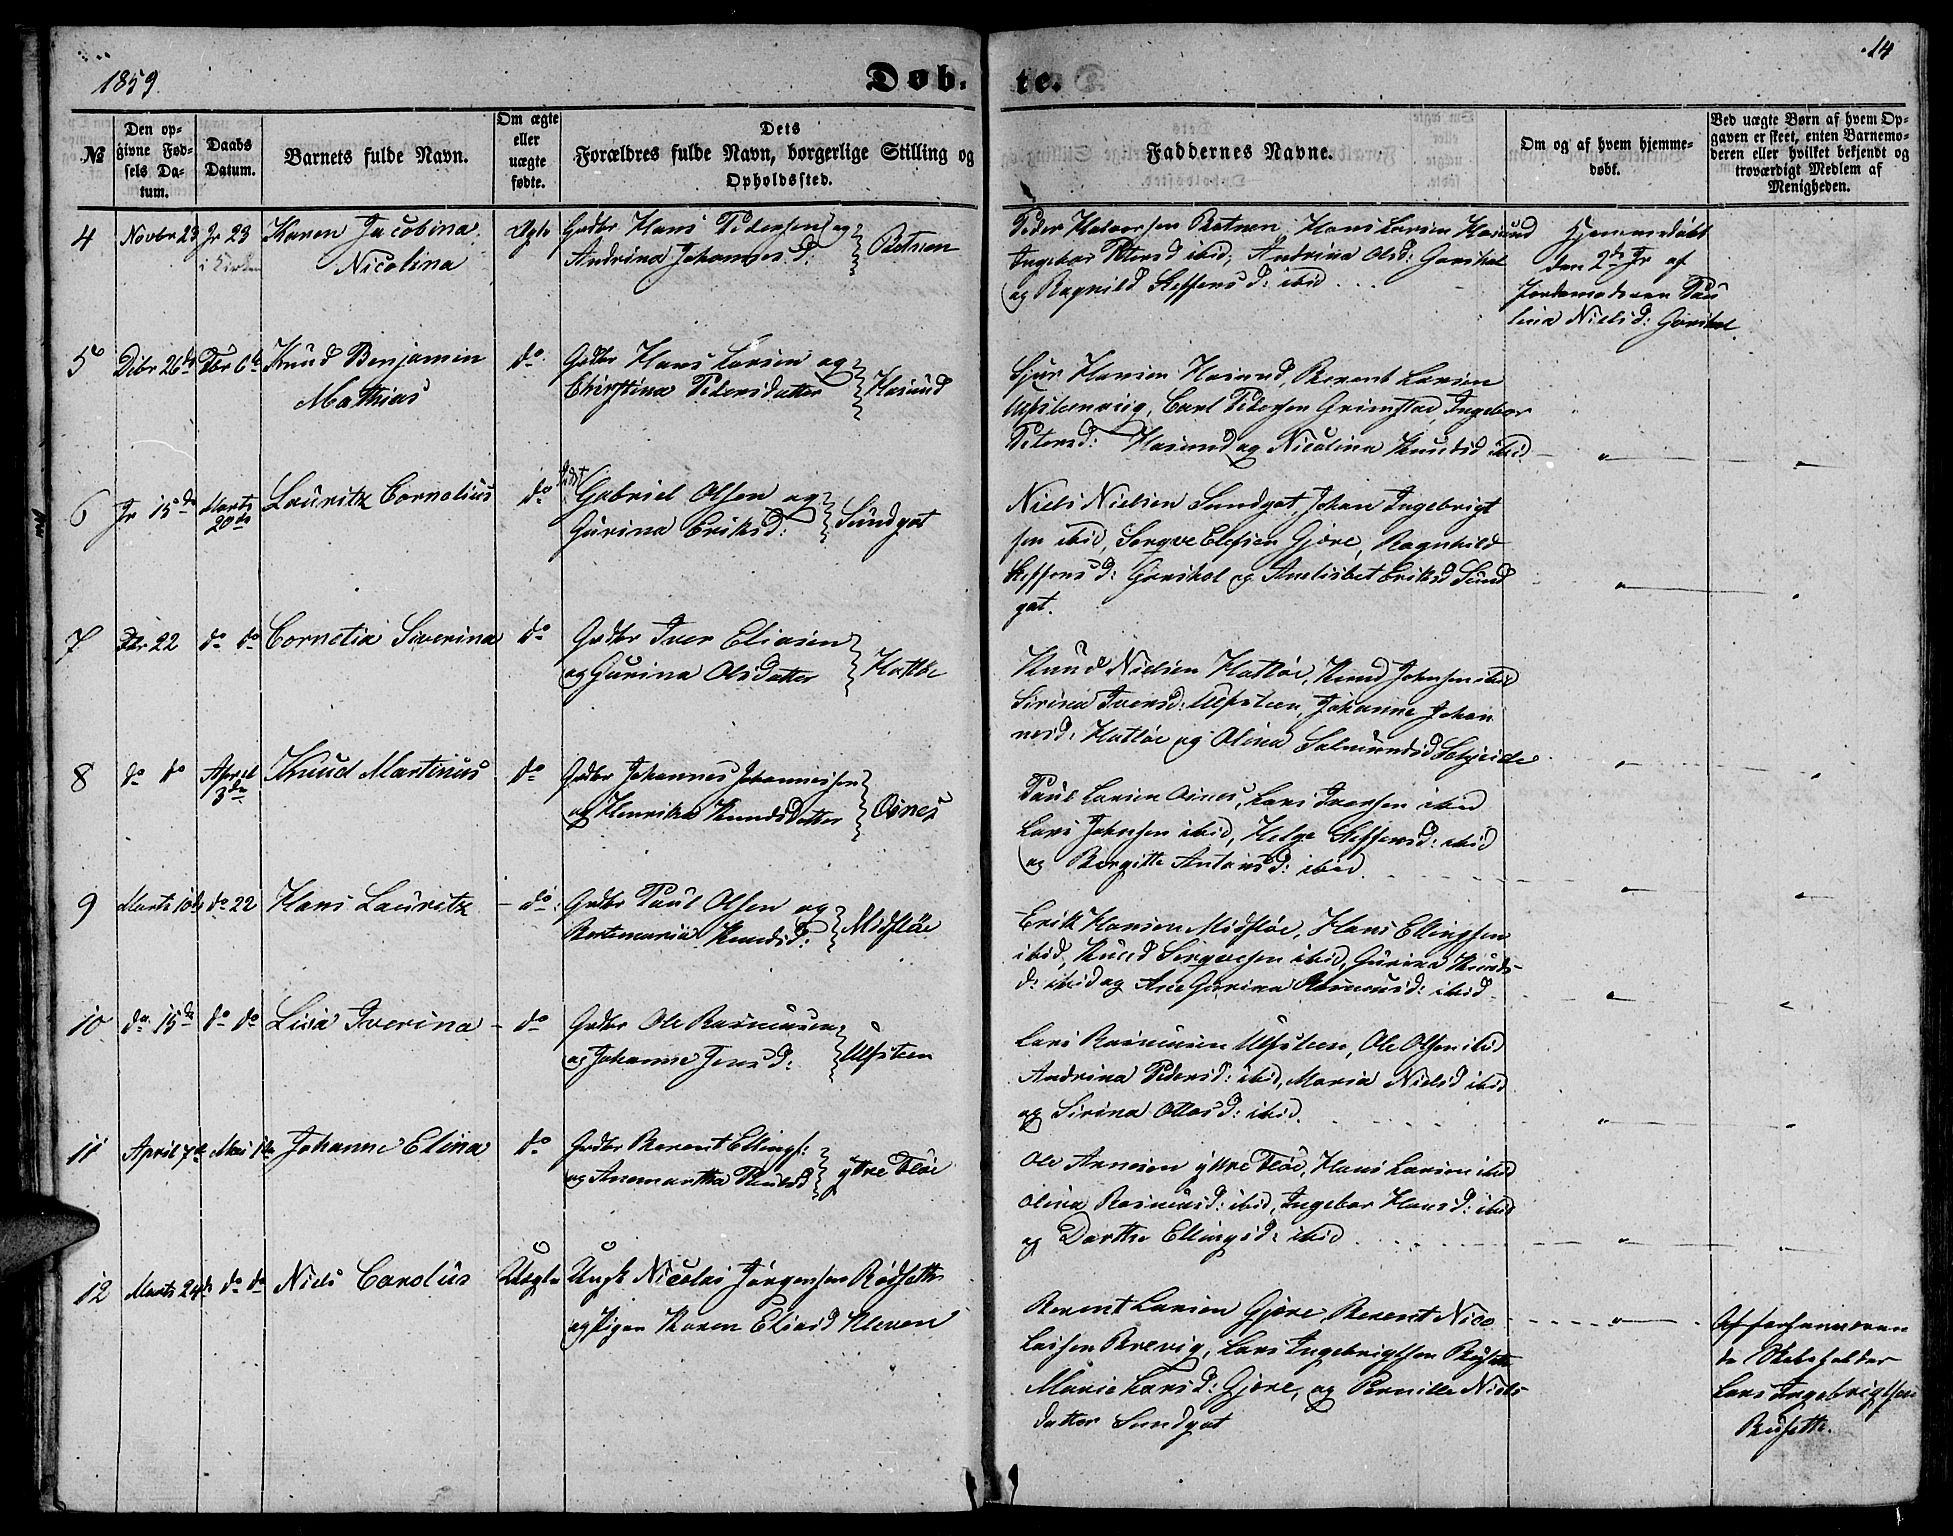 1859.
Døb-
te.
14
№
Den op-
givne Fød-
sels Da-
tum.
Daabs
Datum.
Barnets fulde Navn.
Om ægte
eller
uægte
fødte.
Dets
Forældres fulde Navn, borgerlige Stilling og
Opholdssted.
Faddernes Navne.
Om og af hvem hjemme-
døbt.
Ved uægte Børn af hvem Op-
gaven er skeet, enten Barnemo-
deren eller hvilket bekjendt og
troværdigt Medlem af
Menigheden.
4 Novbr 23 Jr 23 Karen Jacobina Ægte Gdbr Hans Pedersen og
i Kirken Nicolina Andrina Johannesd:
Peder Halvorsen Hans Larsen Hasund
Ingebor Petersd ibid, Andrina Olsd:
og Ragnild Steffensd: ibid
Hjemmedøbt
den 2d Jr af
Jordemoderen Pau
lina Nielsd:
5 Debr 26d Fbr 6te Knud Benjamin do Gdbr Hans Larsen og
Mathias Christina Pedersdatter Hasund
Sjur Hansen Hasund, Berent Larsen
Carl Pedersen Grimstad, Ingebor
Petersd: Hasund og Nicolina Knudsd ibid
6 Jr 15de Marts Lauritz Cornelius do Gabriel Olsen og
20de Gurina Eriksd: Sundgot
Niels Nielsen Sundgot, Johan Ingebrigt
sen ibid, Elefsen Gjøre, Ragnhild
Steffensd: og Anelisbet Eriksd Sund
got.
7 22 do do Cornelia Severina do Gdbr Iver Eliasen
og Gurina Olsdatter Hatløe
Knud Nielsen Hatløe, Knud Johnsen ibid
Sirina Iversd: Ulfsteen, Johanne Johan
nesd: Hatløe og Olina
8 do do April Knud Martinus do Gdbr Johannes Johannessen
3die og Henrika Knudsdatter Osnes
Paul Larsen Osnes, Lars Iversen ibid
Lars Johnsen ibid, Helge Steffensd: ibid
og Bergitte Antonsd: ibid.
9 Marts 10de do 22 Hans Lauritz do Gdbr Paul Olsen og
Bertemaria Knudsd: Midtfløe
Erik Hansen Midtfløe, Hans Ellingsen
ibid, Knud ibid, Gurina Knuds-
d: ibid og Ane Gurina Rasmusd: ibid
10 do 15de do do Lisa Iverina do Gdbr Ole Rasmusen
og Johanne Jensd: Ulfsteen
Lars Rasmusen Ulfsteen, Ole Olsen ibid
Andrina Pedersd: ibid, Maria Nielsd ibid
og Sirina Ottosd: ibid.
11 April 7de Mai 1ste Johanne Elina do Gdbr Berent Ellings:
og Anemartha Knudsd ytre Fløe
Ole Arnesen ytre Fløe, Hans Larsen ibid
Olina Rasmusd: ibid, Ingebor Hansd: ibid
og Dorthe Ellingsd: ibid
12 Marts 24de do do Niels Carolus Uægte Ungk Nicolai Jørgensen Rødsette
og Pigen Karen Eliasd Kleven
Berent Larsen Gjøre, Berent Nico-
laisen Brevig, Lars Ingebrigtsen Rusette
Marie Larsd: Gjøre, og Pernille Niels-
datter Sundgot
Af forhenværen
de Skoleholder
Lars Ingebrigtsen
Rusette.